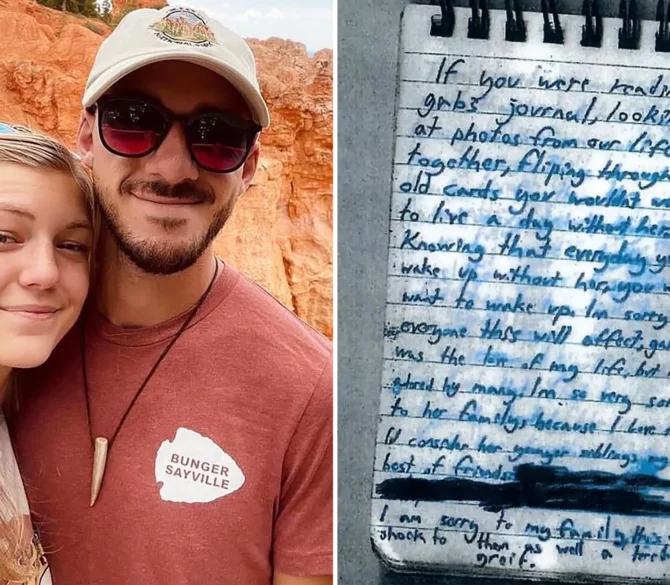 BUNGER
SAYVILLE
If you were readi
gabs journal, looki
at photos from our life
together, fliping through
old cards you wouldnt w
to live a day without her
Knowing that everyday y
wake up without her, you
want to wake up. Im sorry
everyone this will affect, ga
was the lov of my life, but
adored by many. Im so very sor
to her familys because I love
I'd consider her younger siblings
best of friends
I am sorry to my family, this
shock to them as well a terr
greif.